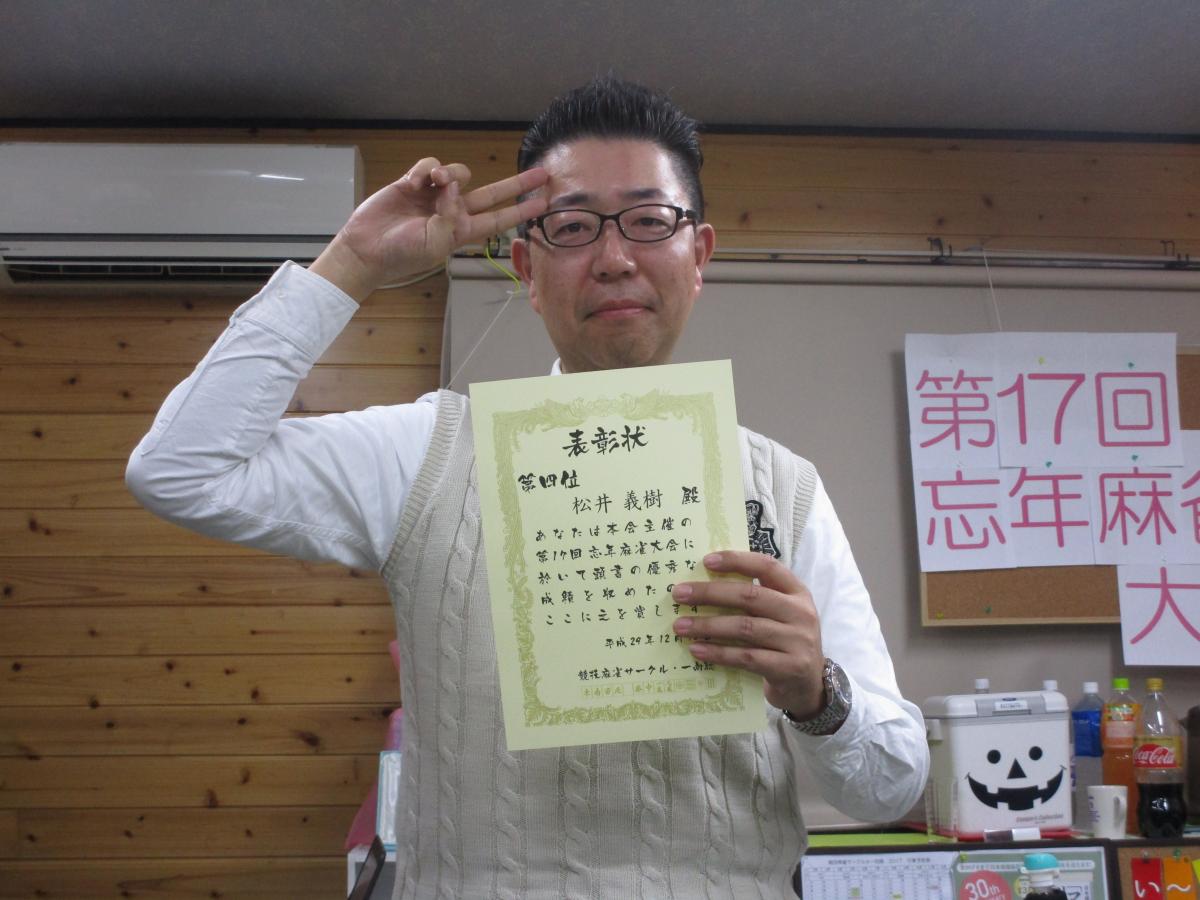 表彰状
第四位
松井 義樹 殿
あなたは本会主催の
第17回忘年麻雀大会に
於いて頭書の優秀な
成績を収めたの
ここに之を賞します
平成29年12月
競技麻雀サークル・一
第17回
忘年麻雀
大
Coca-Cola
30th
い〜